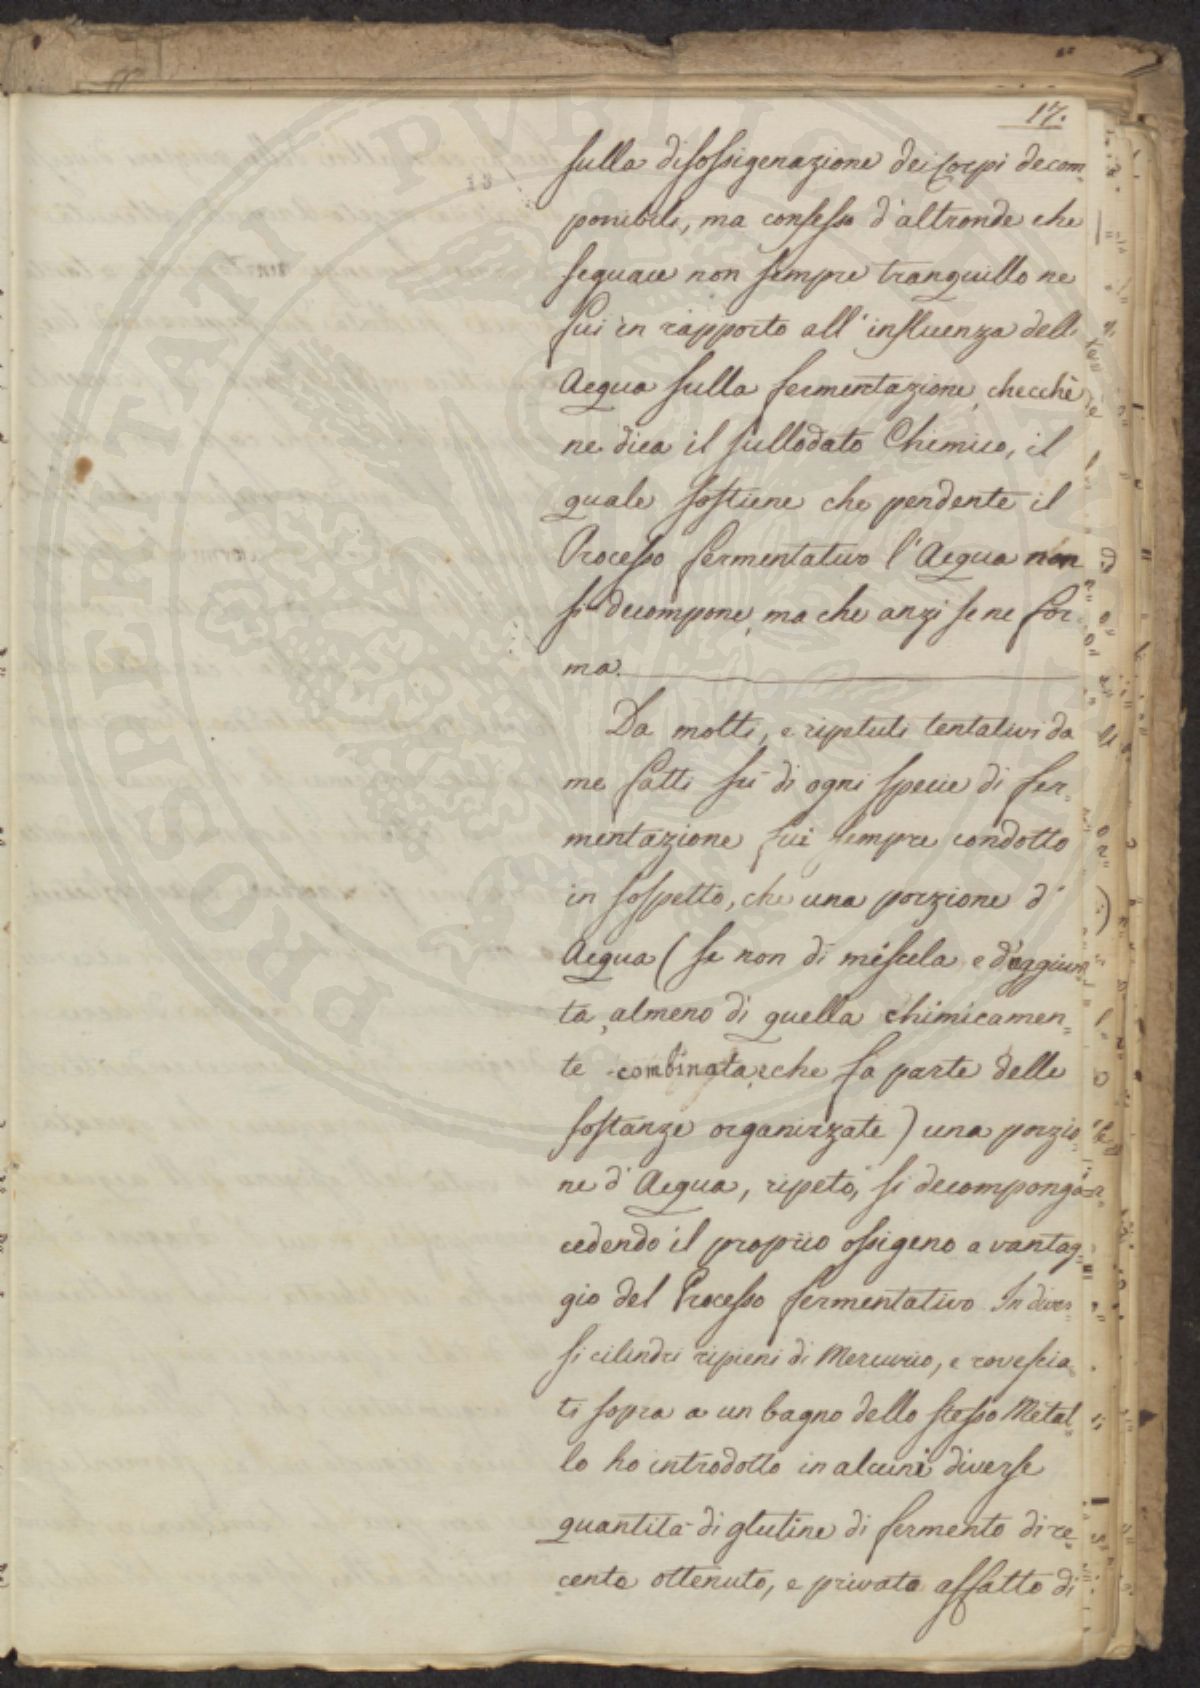 17.
sulla disossigenazione dei Corpi decom=
ponibili, ma confesso d'altronde che
seguace non sempre tranquillo ne
fui in rapporto all'influenza dell'
Acqua sulla fermentazione, checchè
ne dica il sullodato Chimico, il
quale sostiene che pendente il
Processo fermentativo l'Acqua non
si decompone, ma che anzi se ne for=
ma.
Da molti, e ripetuti tentativi da
me fatti sù di ogni specie di fer=
mentazione fui sempre condotto
in sospetto, che una porzione d'
Acqua (se non di miscela e d'aggiun=
ta, almeno di quella chimicamen=
te combinata, che fa parte delle
sostanze organizzate) una porzio=
ne d'Acqua, ripeto, si decomponga
cedendo il proprio ossigeno a vantag=
gio del Processo fermentativo. In diver=
si cilindri ripieni di Mercurio, e rovescia=
ti sopra a un bagno dello stesso Metal=
lo ho introdotto in alcuni diverse
quantità di glutine di fermento di re=
cente ottenuto, e privato affatto di
PROSPERITATI PVBLICAE